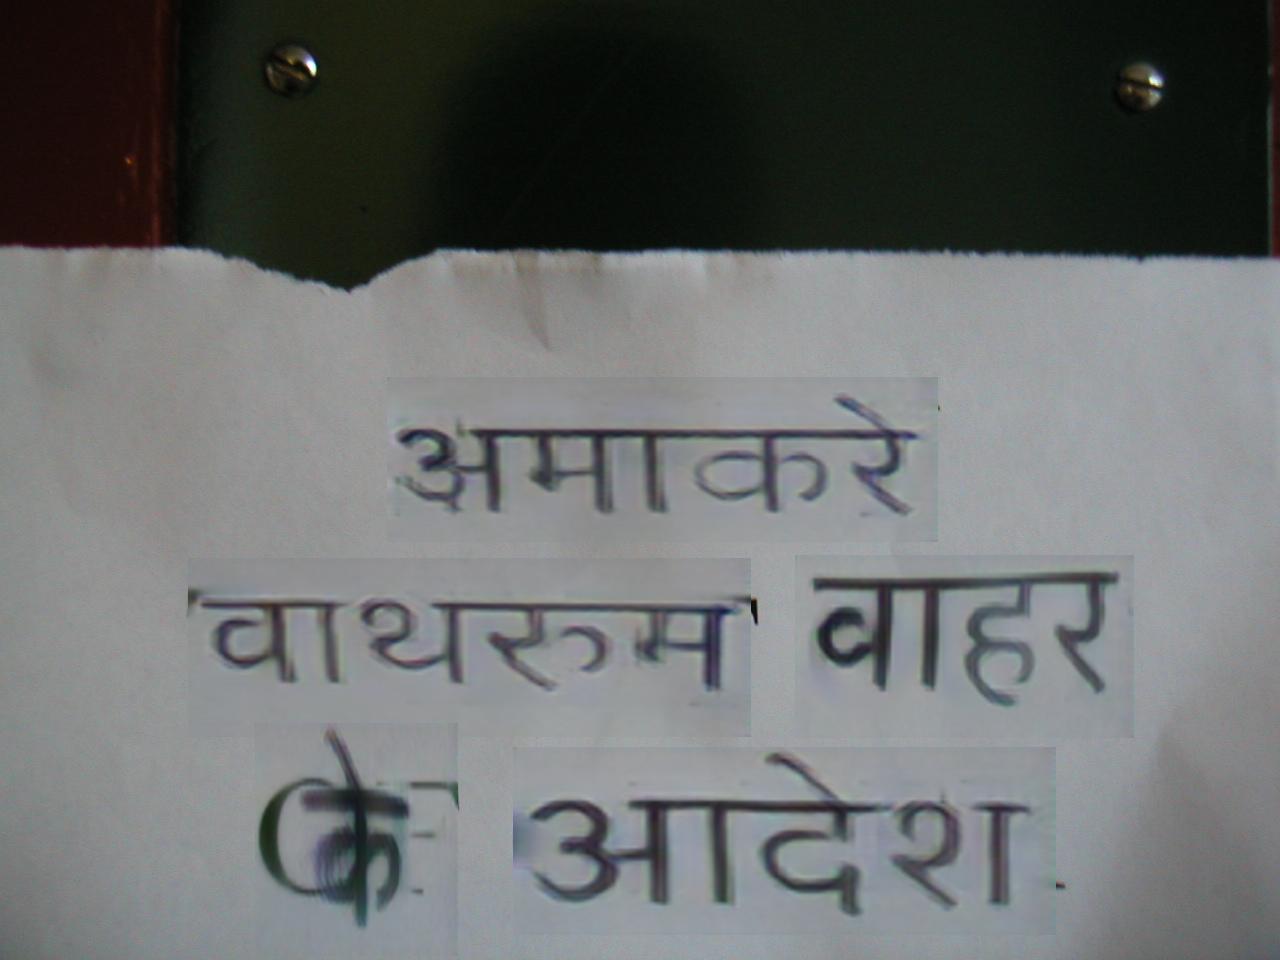 अमाकरे
वाथरुम बाहर
के आदेश